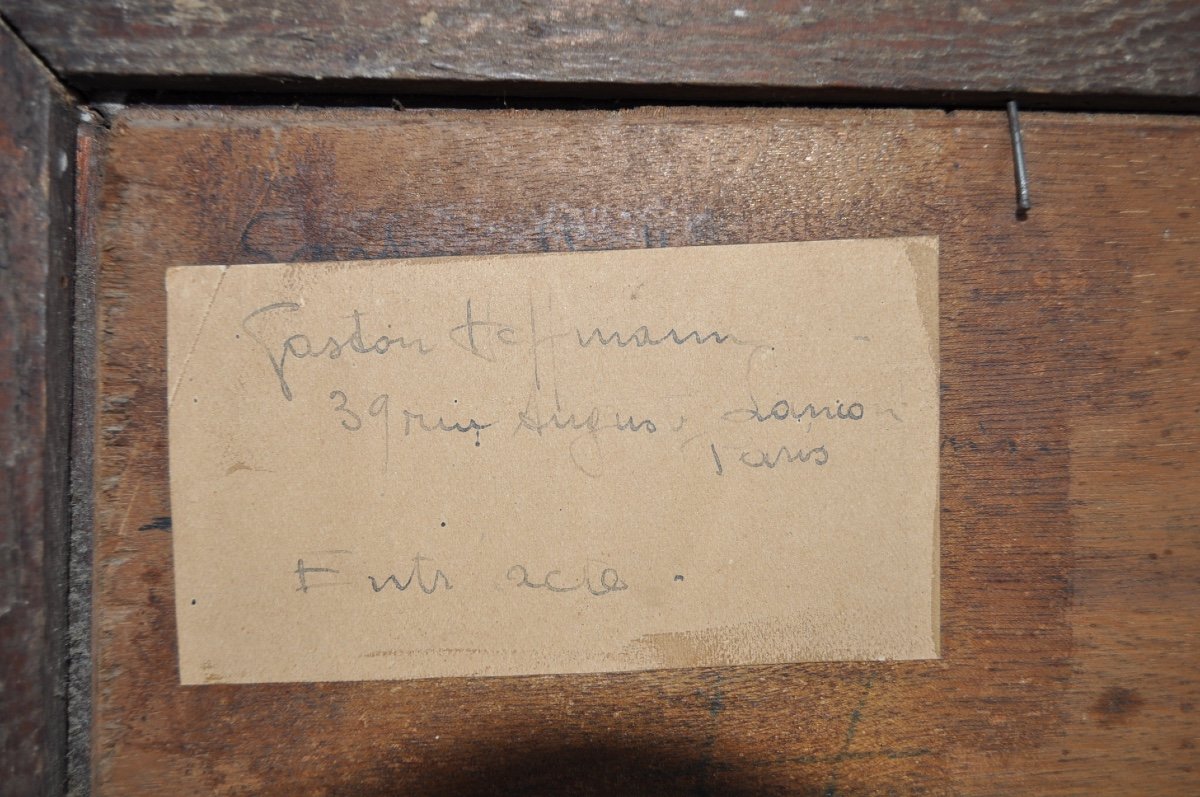 Gaston Hoffmann
39 rue August Lançon
Paris
Entr acte.